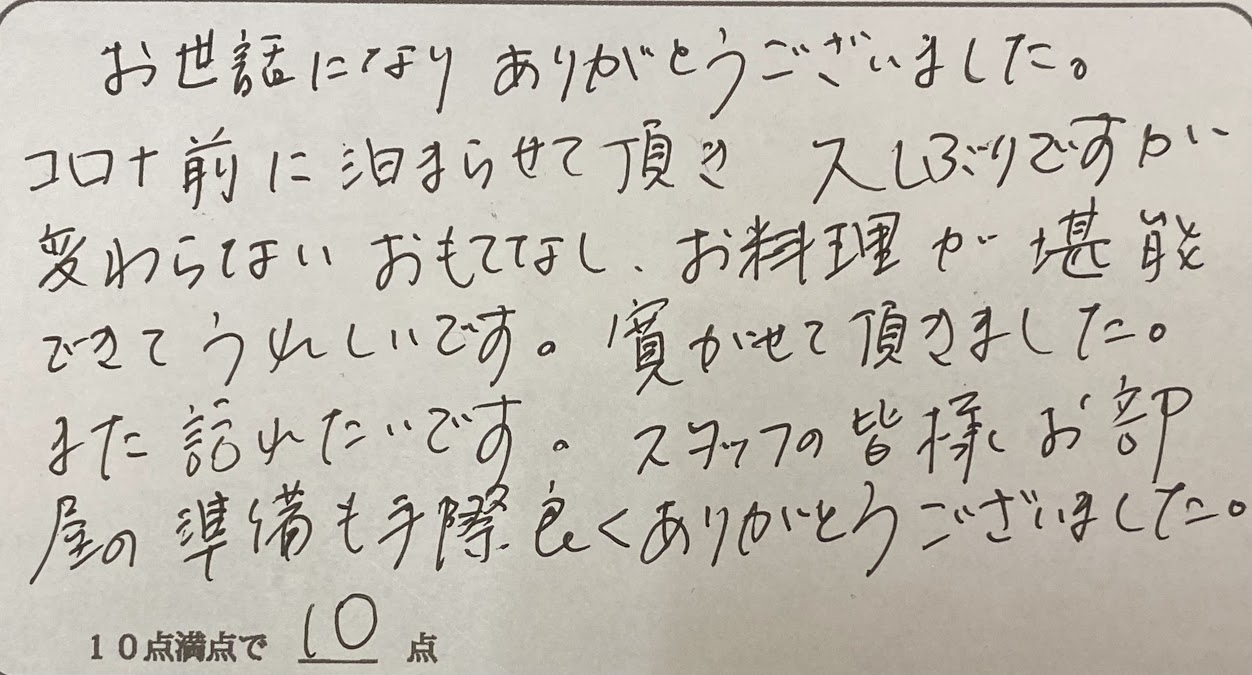 お世話になり ありがとうございました。
コロナ前に泊まらせて頂き 久しぶりですが
変わらない おもてなし、お料理が堪能
できてうれしいです。寛がせて頂きました。
また訪れたいです。スタッフの皆様 お部
屋の準備も手際良くありがとうございました。
10点満点で 10 点